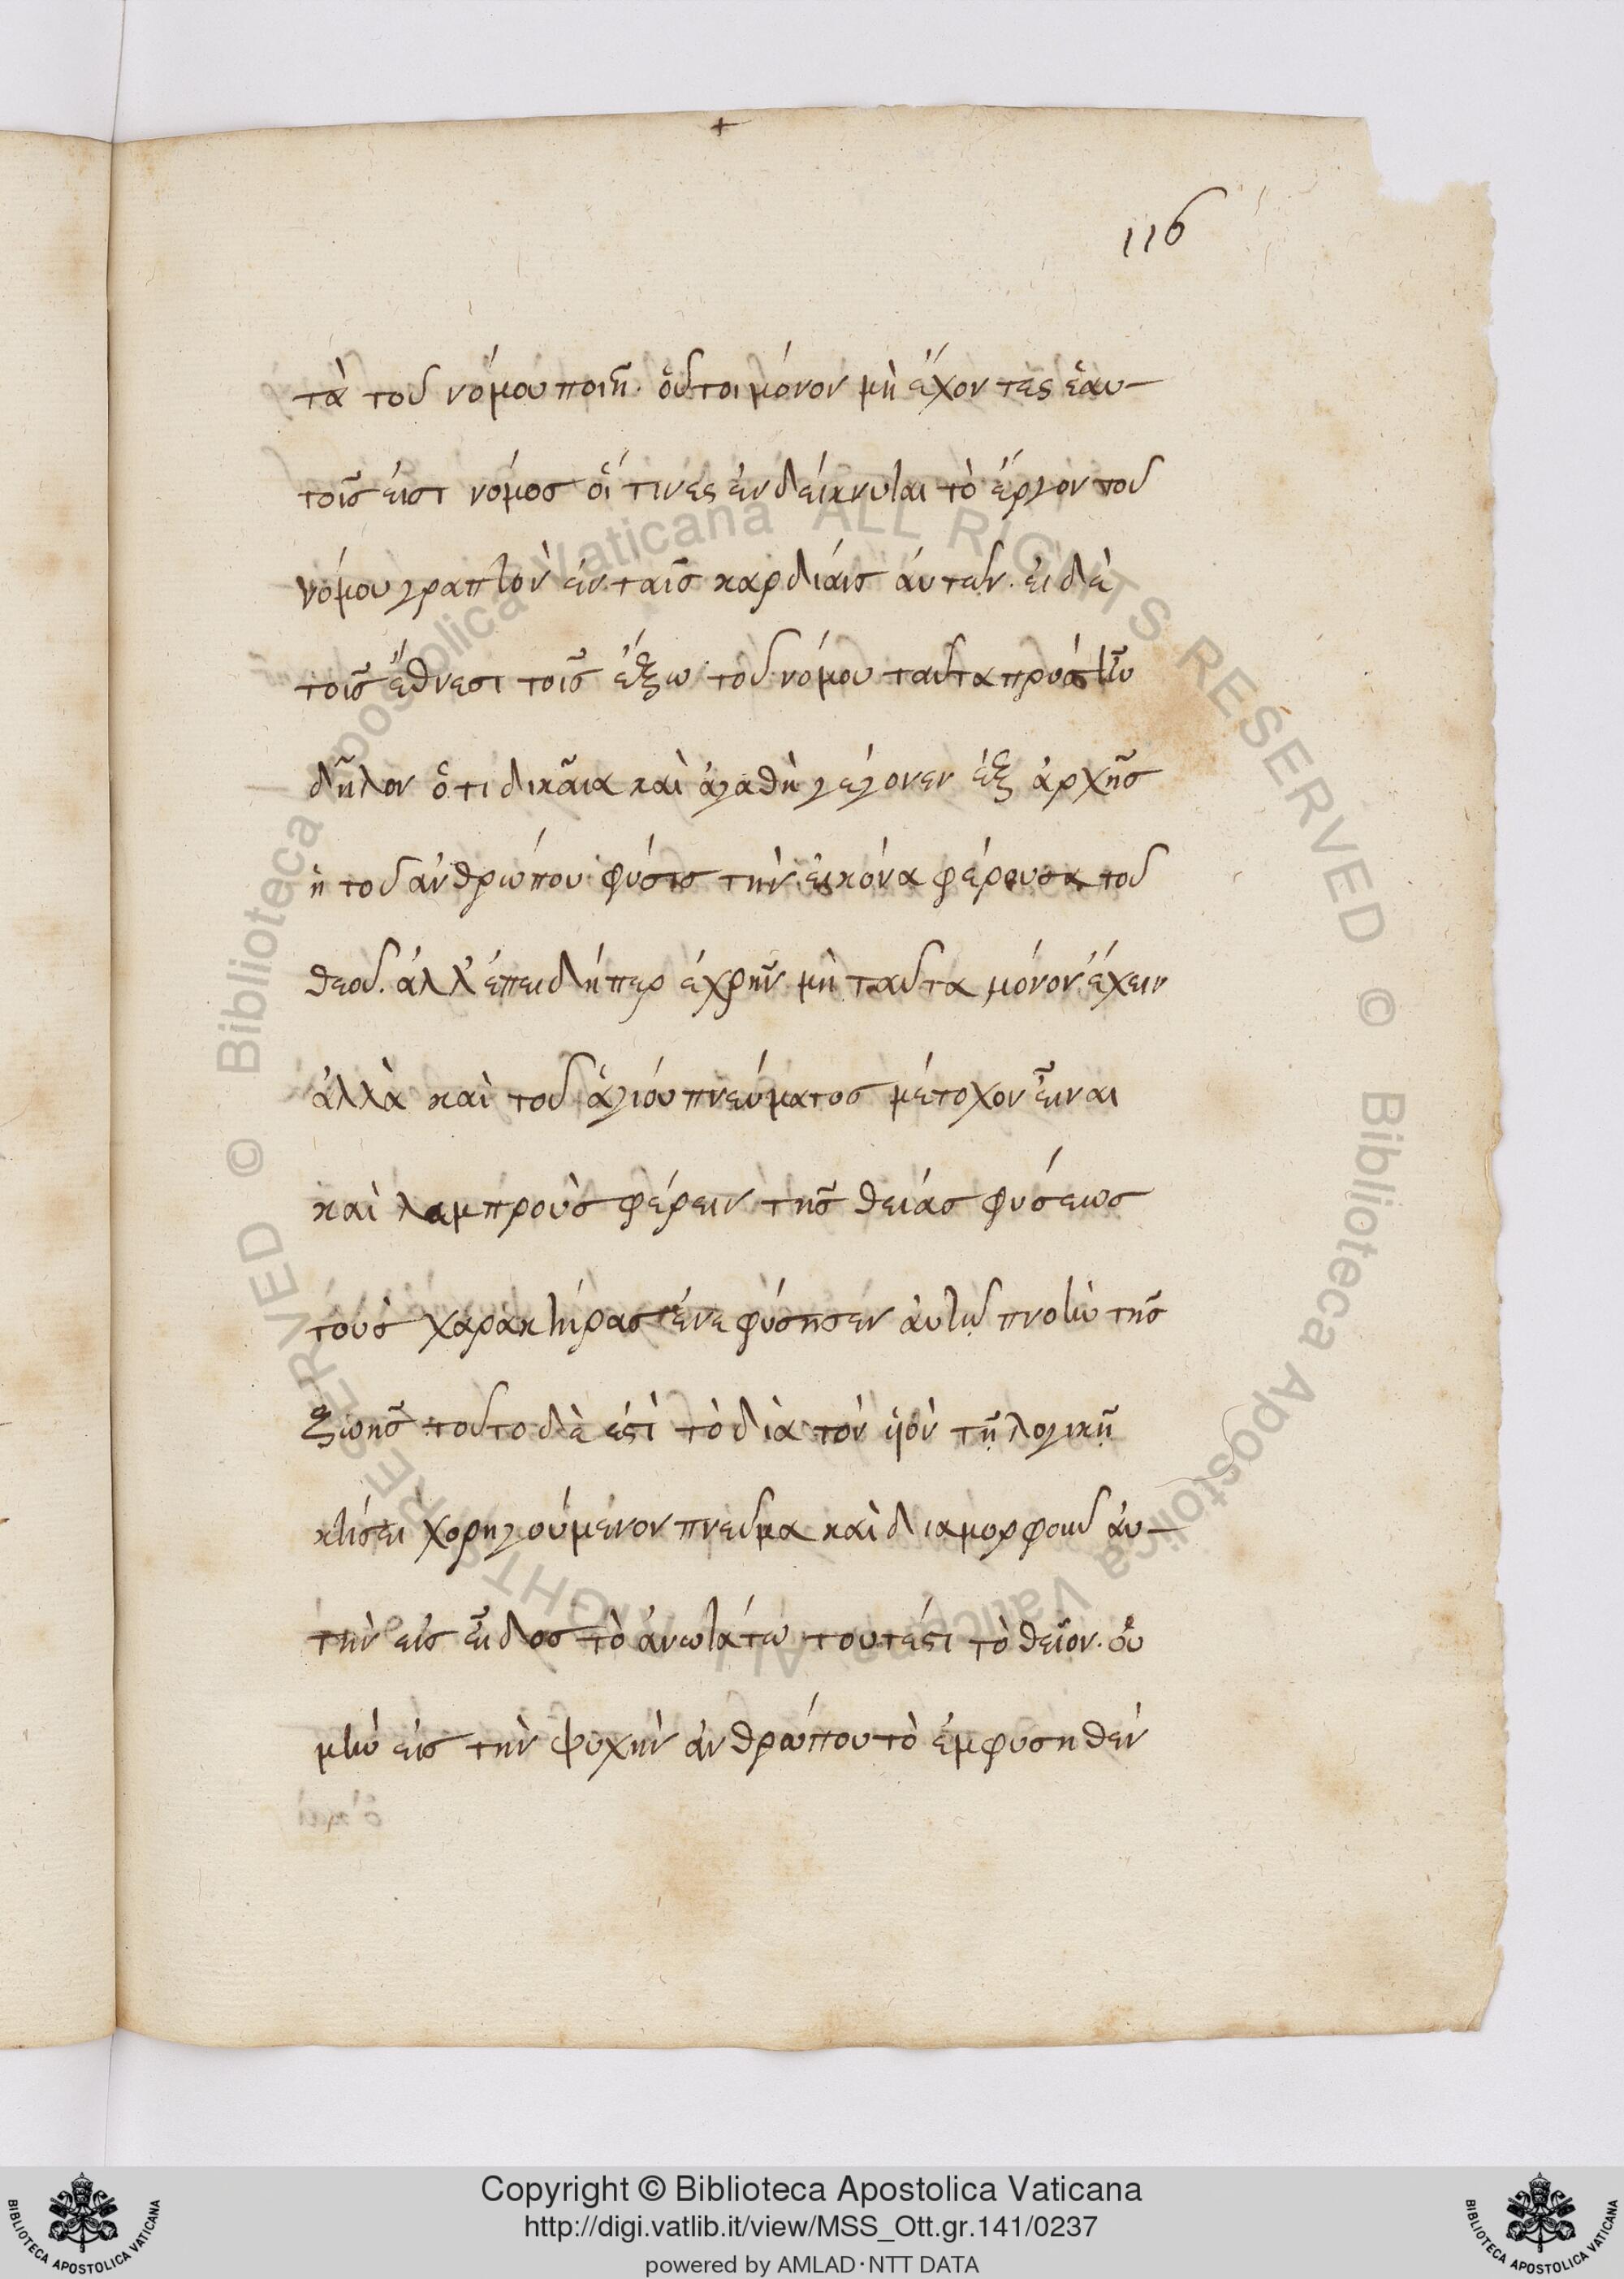 116
τὰ τοῦ νόμου ποιῆ. οὗτοι μόνον μὴ ἔχοντες ἑαυ-
τοῖς εἰσι νόμος οἵ τινες ἐνδείκνυται τὸ ἔργον τοῦ
νόμου γραπτὸν ἐν ταῖς καρδίαις αὐτῶν. εἰ δὲ
τοῖς ἔθνεσι τοῖς ἔξω τοῦ νόμου ταῦτα πρόσην
δῆλον ὅτι δικαῖα καὶ ἀγαθὴ γέγονεν ἐξ ἀρχῆς
ἡ τοῦ ἀνθρώπου φύσις τὴν εἰκόνα φέρουσα τοῦ
θεοῦ. ἀλλ' ἐπειδήπερ ἐχρῆν μὴ ταῦτα μόνον ἔχειν
ἀλλὰ καὶ τοῦ ἁγίου πνεύματος μέτοχον εἶναι
καὶ λαμπροὺς φέρειν τῆς θείας φύσεως
τοὺς χαρακτήρας ἐνεφύσησεν αὐτῷ πνοὴν τῆς
ζωῆς τοῦτο δὲ ἐστὶ τὸ διὰ τὸν ϋὸν τῇ λογικῇ
κτίσει χορηγούμενον πνεῦμα καὶ διαμορφοῦν αὐ-
τὴν εἰς εἶδος τὸ ἀνωτάτω τουτέστι τὸ θεῖον. οὐ
μὴν εἰς τὴν ψυχὴν ἀνθρώπου τὸ ἐμφυσηθὲν
Copyright © Biblioteca Apostolica Vaticana
http://digi.vatlib.it/view/MSS_Ott.gr.141/0237
powered by AMLAD·NTT DATA
BIBLIOTECA APOSTOLICA VATICANA
BIBLIOTECA APOSTOLICA VATICANA
© Biblioteca Apostolica Vaticana ALL RIGHTS RESERVED © Biblioteca Apostolica Vaticana ALL RIGHTS RESERVED